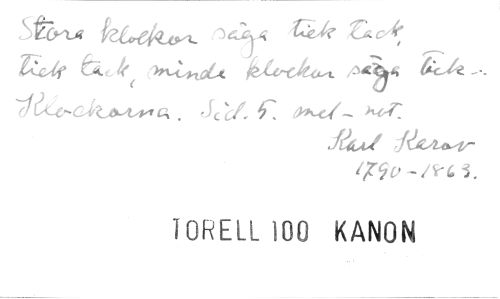 Stora klockor säga tick tack,
tick tack, minde klockor säga tick-
Klockorna. Sid. 5. mel-not.
Karl Karow
1790-1863.
TORELL 100 KANON